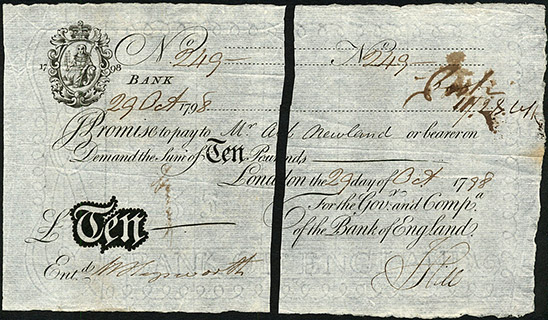 Nº 249 Nº 249
17 98
BANK
29 Oct 1798
I Promise to pay to Mr Ab. Newland or bearer on
Demand the Sum of Ten Pounds
London the 29 day of Oct 1798
For the Govr. and Compa.
of the Bank of England.
£ Ten
Entd. Hepworth